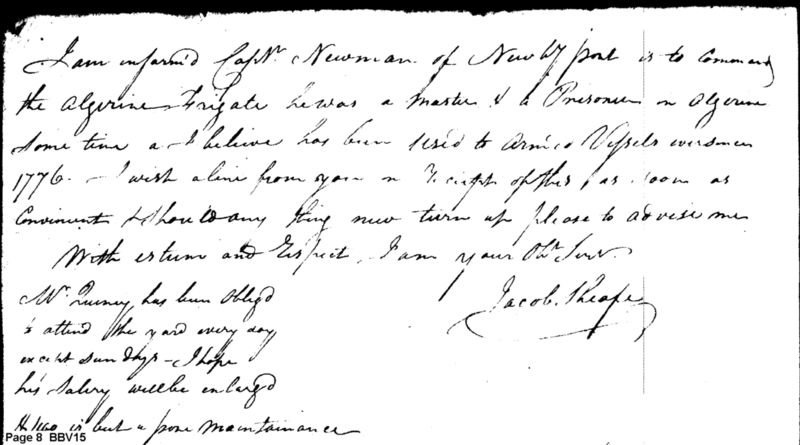 I am inform'd Capn. Newman of Newby port is to Command
the Algerine Frigate he was a master & a Prisoner in Algerine
some time a - I believe has been used to Armed Vessels ever since
1776 - I wish a line from you on Receipt of this, as soon as
Convinient & should any thing new turn up please to advise me
With esteem and Respect, I am your Obt. Servt.
Jacob. Sheafe
Mr. has been Oblig'd
to attend the yard every day
except sundays - I hope
his Salery will be enlarg'd
is but a pore maintainance
Page 8 BBV15